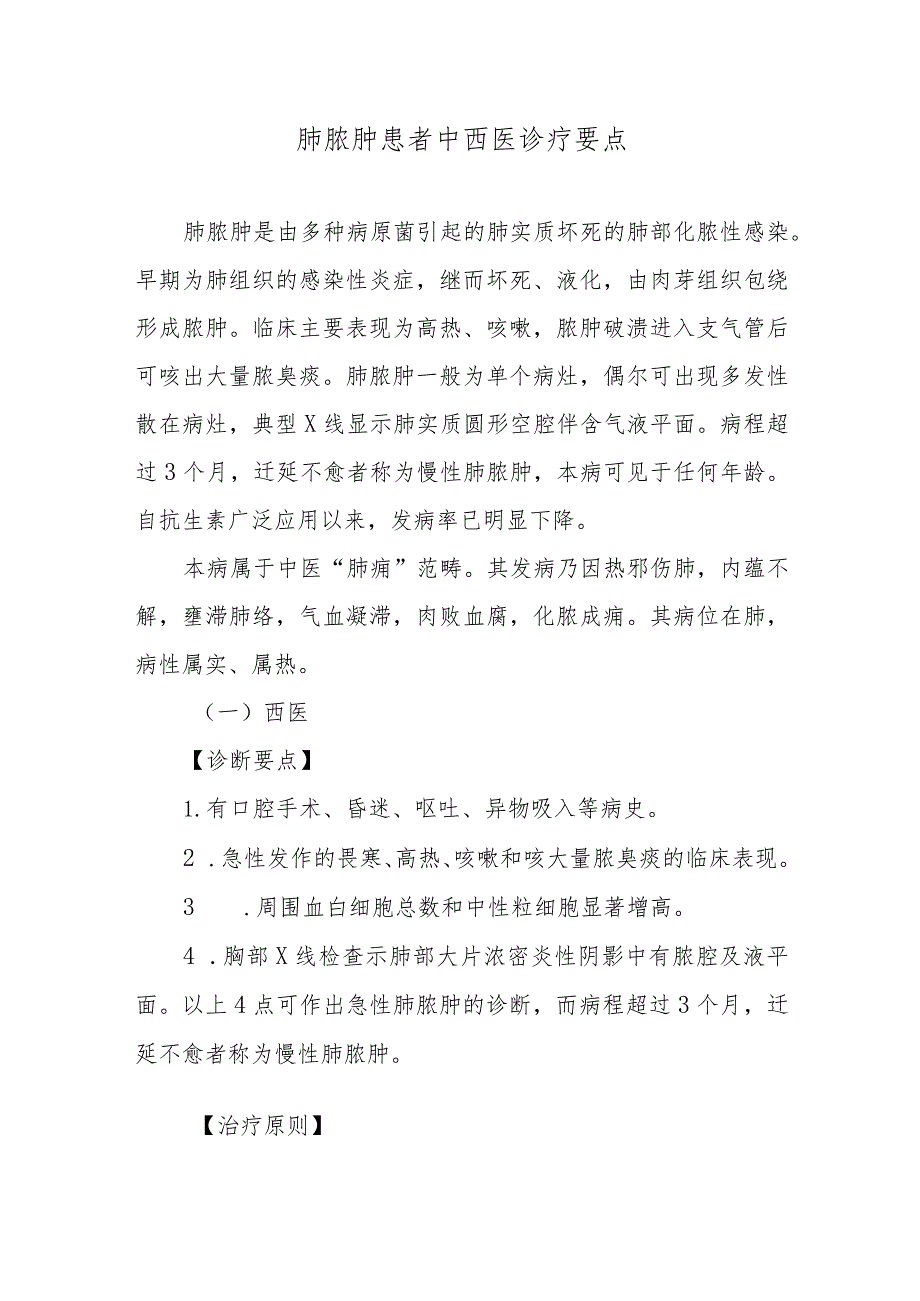 肺脓肿患者中西医诊疗要点
肺脓肿是由多种病原菌引起的肺实质坏死的肺部化脓性感染。
早期为肺组织的感染性炎症，继而坏死、液化，由肉芽组织包绕
形成脓肿。临床主要表现为高热、咳嗽，脓肿破溃进入支气管后
可咳出大量脓臭痰。肺脓肿一般为单个病灶，偶尔可出现多发性
散在病灶，典型X线显示肺实质圆形空腔伴含气液平面。病程超
过3个月，迁延不愈者称为慢性肺脓肿，本病可见于任何年龄。
自抗生素广泛应用以来，发病率已明显下降。
本病属于中医“肺痈”范畴。其发病乃因热邪伤肺，内蕴不
解，壅滞肺络，气血凝滞，肉败血腐，化脓成痈。其病位在肺，
病性属实、属热。
（一）西医
【诊断要点】
1.有口腔手术、昏迷、呕吐、异物吸入等病史。
2 .急性发作的畏寒、高热、咳嗽和咳大量脓臭痰的临床表现。
3 .周围血白细胞总数和中性粒细胞显著增高。
4 .胸部X线检查示肺部大片浓密炎性阴影中有脓腔及液平
面。以上4点可作出急性肺脓肿的诊断，而病程超过3个月，迁
延不愈者称为慢性肺脓肿。
【治疗原则】